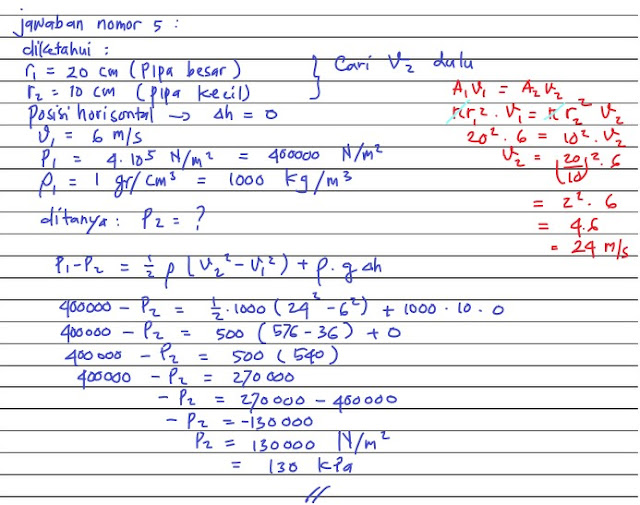 jawaban nomor 5 :
diketahui :
r₁ = 20 cm (pipa besar)
r₂ = 10 cm (pipa kecil)
} Cari V₂ dulu
Posisi horisontal → Δh = 0
V₁ = 6 m/s
P₁ = 4.10⁵ N/m² = 400000 N/m²
ρ₁ = 1 gr/cm³ = 1000 kg/m³
ditanya : P₂ = ?
A₁V₁ = A₂V₂
πr₁². V₁ = π r₂² V₂
20². 6 = 10². V₂
V₂ = (20/10)². 6
= 2². 6
= 4.6
= 24 m/s
P₁-P₂ = ½ ρ (V₂² - V₁²) + ρ. g Δh
400000 - P₂ = ½. 1000 (24² - 6²) + 1000 . 10 . 0
400000 - P₂ = 500 (576 - 36) + 0
400000 - P₂ = 500 (540)
400000 - P₂ = 270000
- P₂ = 270000 - 400000
- P₂ = -130000
P₂ = 130000 N/m²
= 130 kPa
//